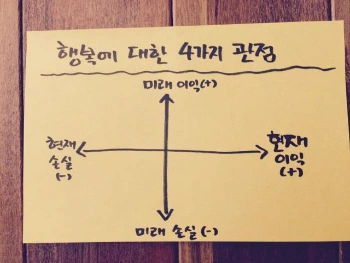 행복에 대한 4가지 관점
미래 이익(+)
현재
손실
(-)
현재
이익
(+)
미래 손실(-)